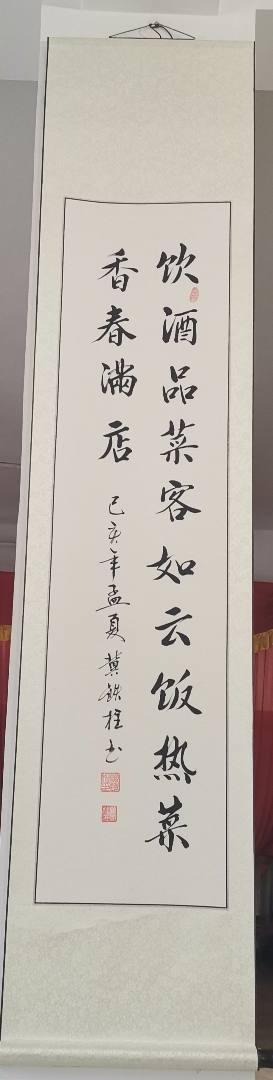 饮酒品菜客如云饭热菜
香春满店
己亥年孟夏冀铁柱书